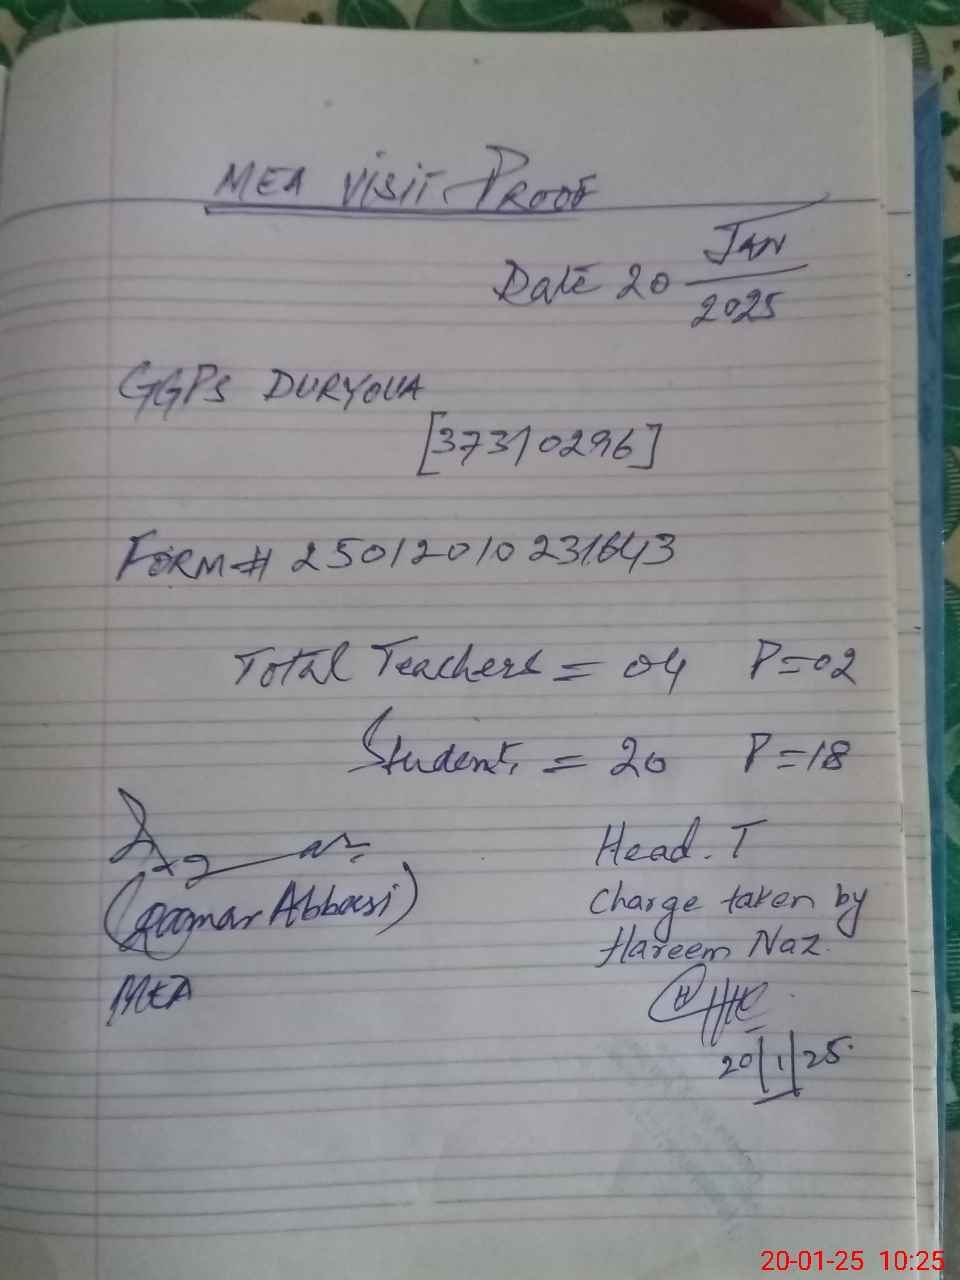 MEA Visit Proof
Date 20 Jan
2025
GGPS DURYOUA
[37310296]
Form # 25012010231643
Total Teachers = 04 P=02
Students = 20 P=18
Head. T
(Qamar Abbasi)
Charge taken by
Hareem Naz.
MEA
20/1/25
20-01-25 10:25